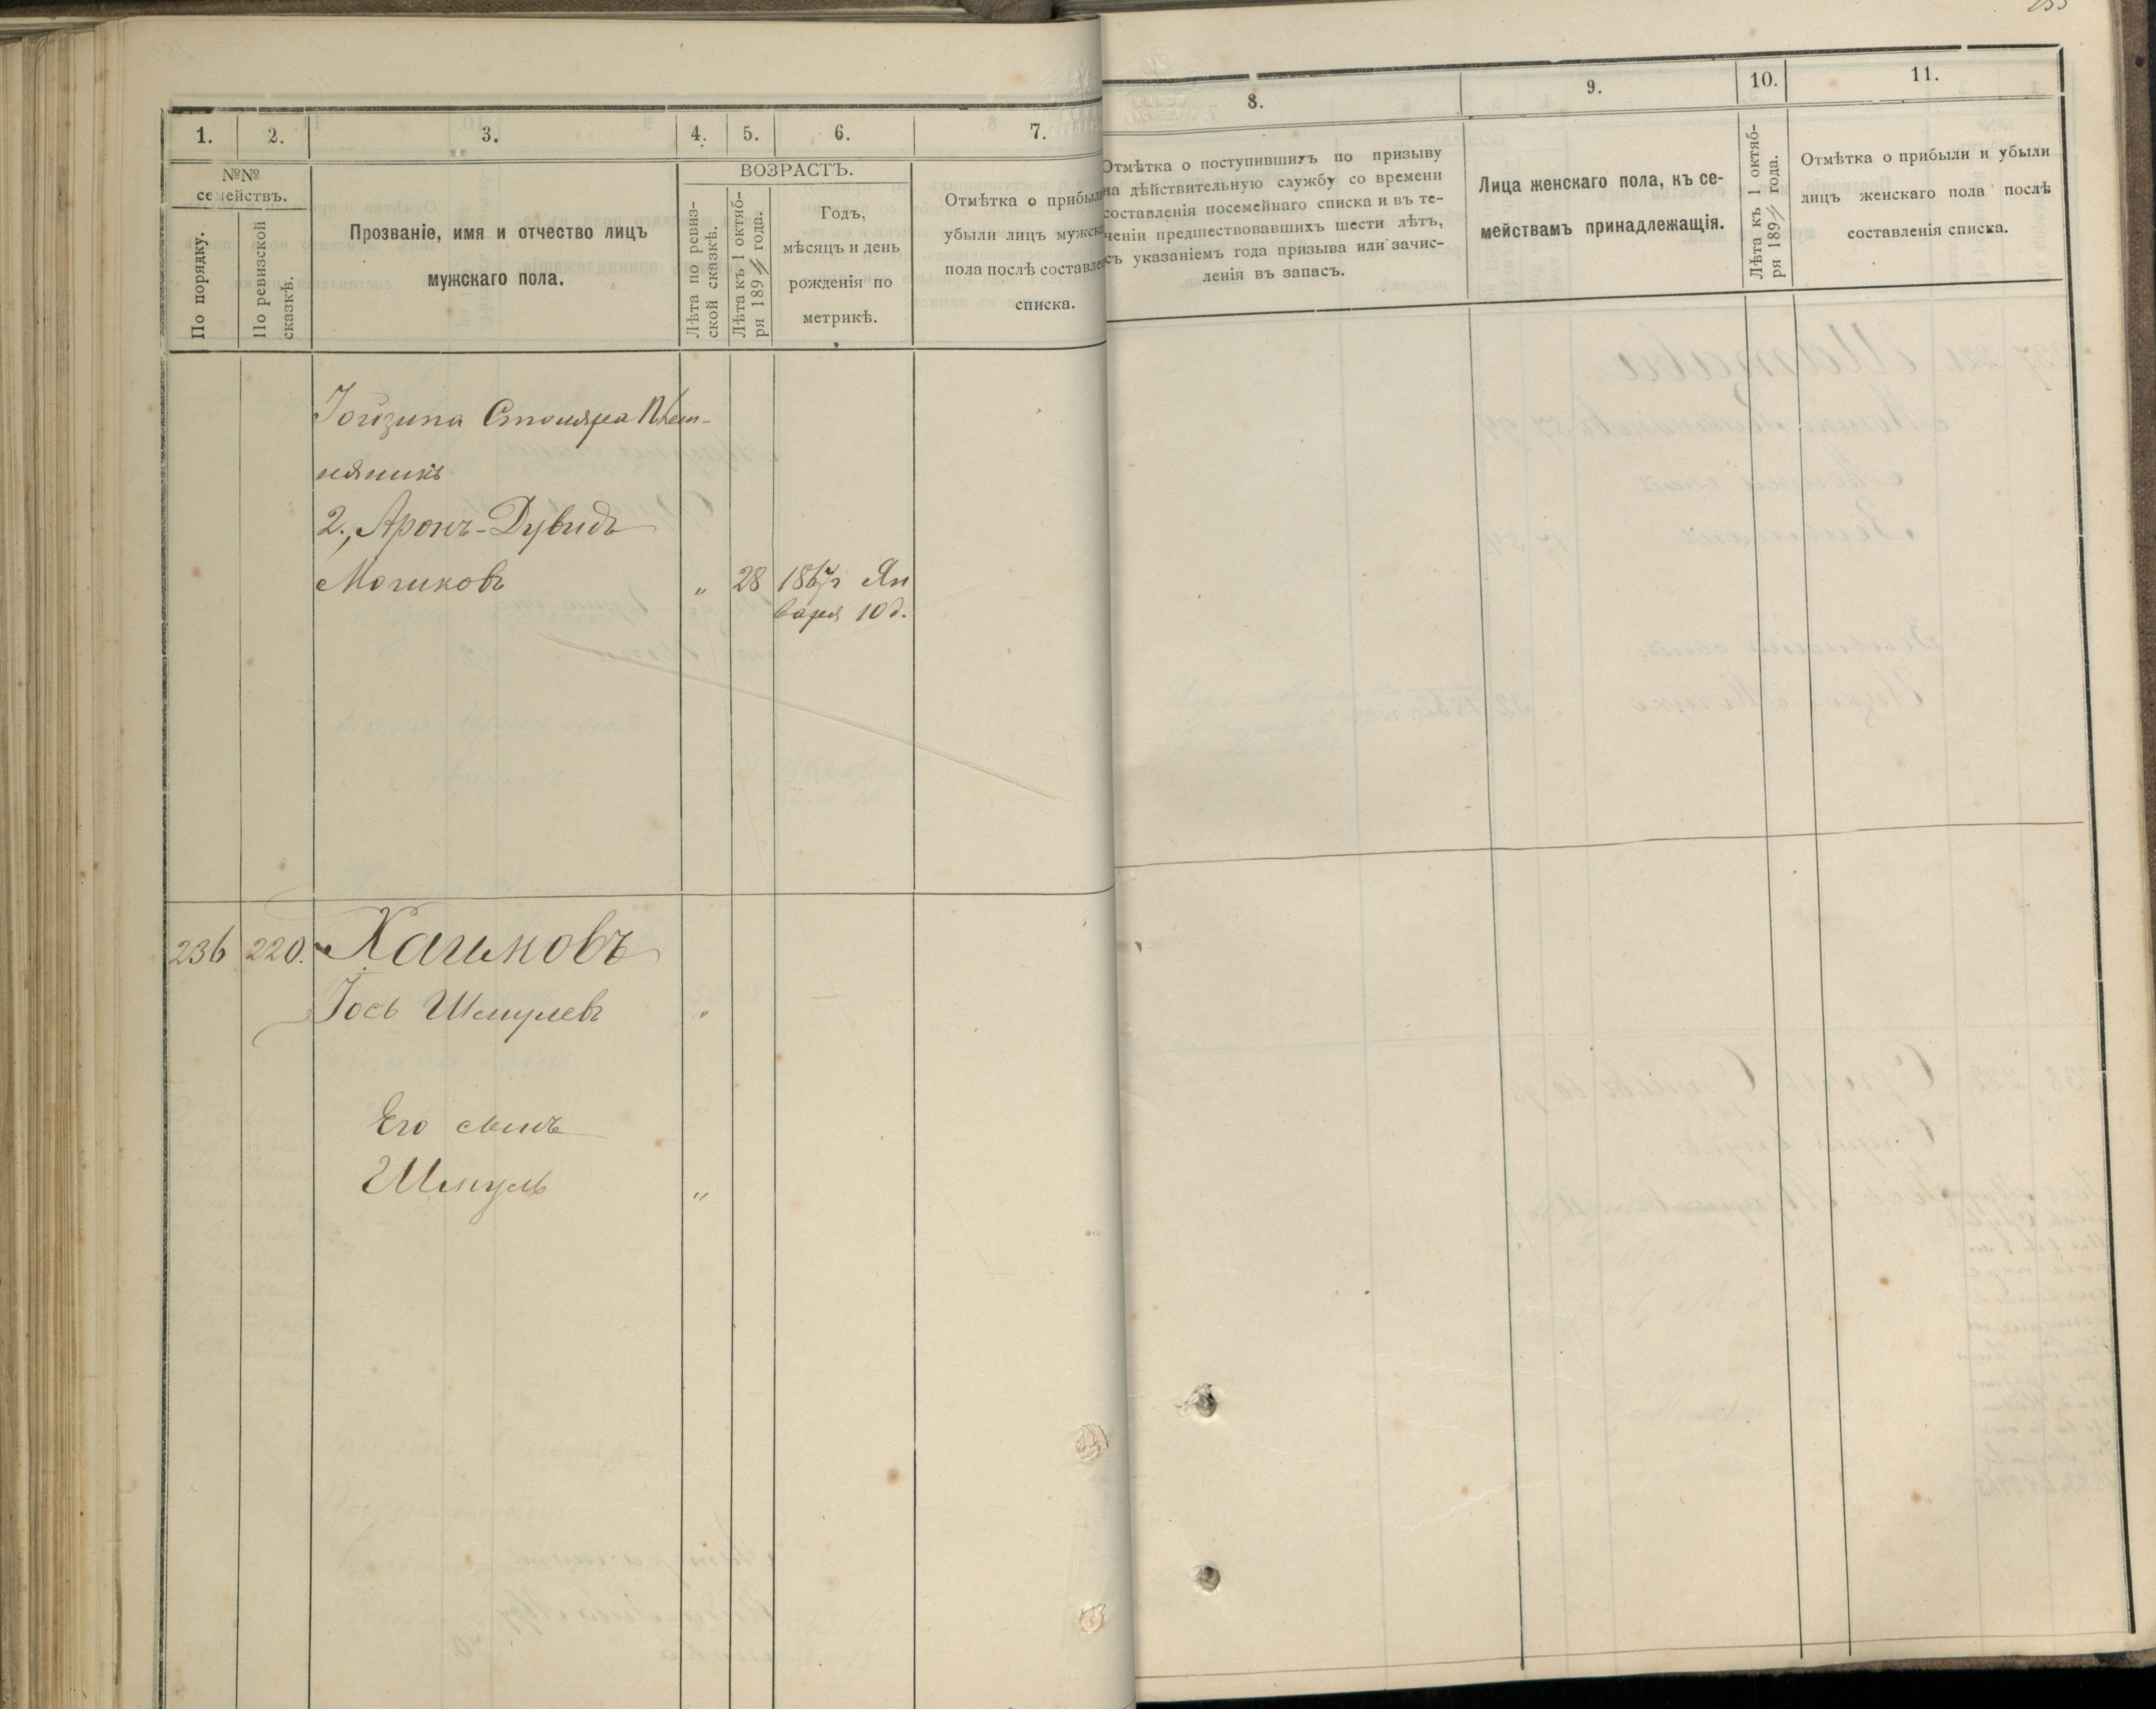 1.
2.
3.
4.
5.
6.
7.
№№
семействъ.
По порядку.
По ревизской
сказкѣ.
Прозваніе, имя и отчество лицъ
мужскаго пола.
ВОЗРАСТЪ.
Лѣта по ревиз-
ской сказкѣ.
Лѣта къ 1 октяб-
ря 189 года.
Годъ,
мѣсяцъ и день
рожденія по
метрикѣ.
Отмѣтка о прибыли
убыли лицъ мужска
пола послѣ составле
списка.
Столяра Плем-
янникъ
2., Аронъ-Дувидъ
„ 28 Ян
варя 10 д.
236 220.
Іось Шмулевъ „
Его сынъ
Шмуль „
8.
9.
10.
11.
Отмѣтка о поступившихъ по призыву
на дѣйствительную службу со времени
составленія посемейнаго списка и въ те-
ченіи предшествовавшихъ шести лѣтъ,
съ указаніемъ года призыва или зачис-
ленія въ запасъ.
Лица женскаго пола, къ се-
мействамъ принадлежащія.
Лѣта къ 1 октяб-
ря 189 года.
Отмѣтка о прибыли и убыли
лицъ женскаго пола послѣ
составленія списка.